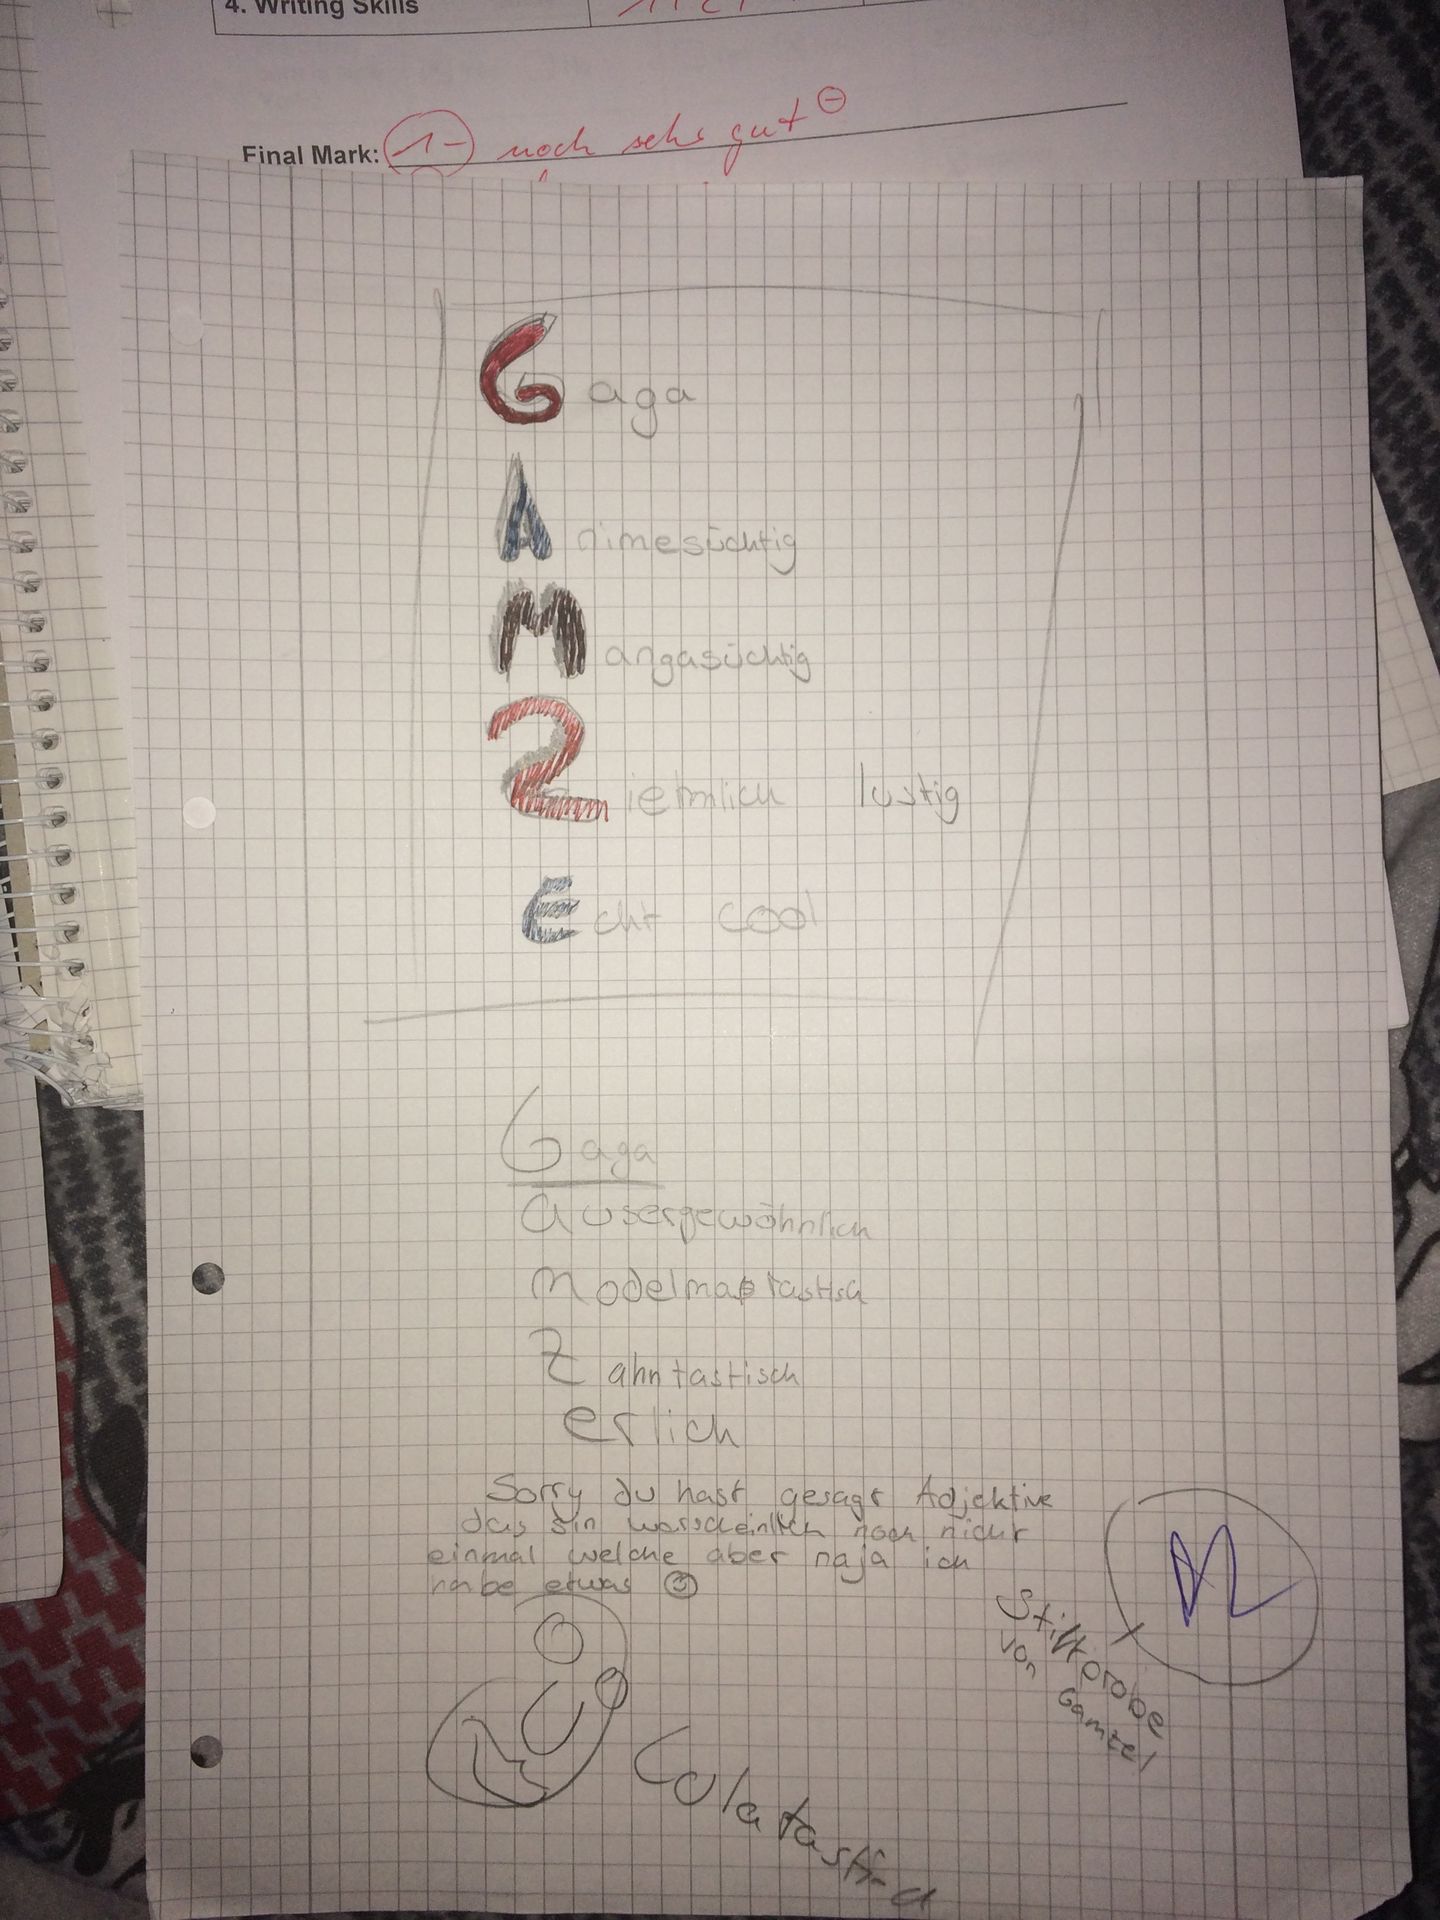 4. Writing Skills
Final Mark: 1- noch sehr gut ⊖
Gaga
Animesüchtig
Mangasüchtig
Ziehmlich lustig
Echt cool
Gaga
ausergewöhnlich
Modelmaßtastisch
Zahntastisch
erlich
Sorry du hast gesagt Adjektive
das sin warscheinlich noch nicht
einmal welche aber naja ich
habe etwas ☺
Stiftprobe
von Gamze!